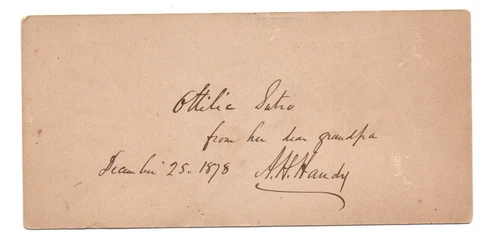 Ottilie Sutro
from her dear grandpa
December 25. 1878 A.H. Handy